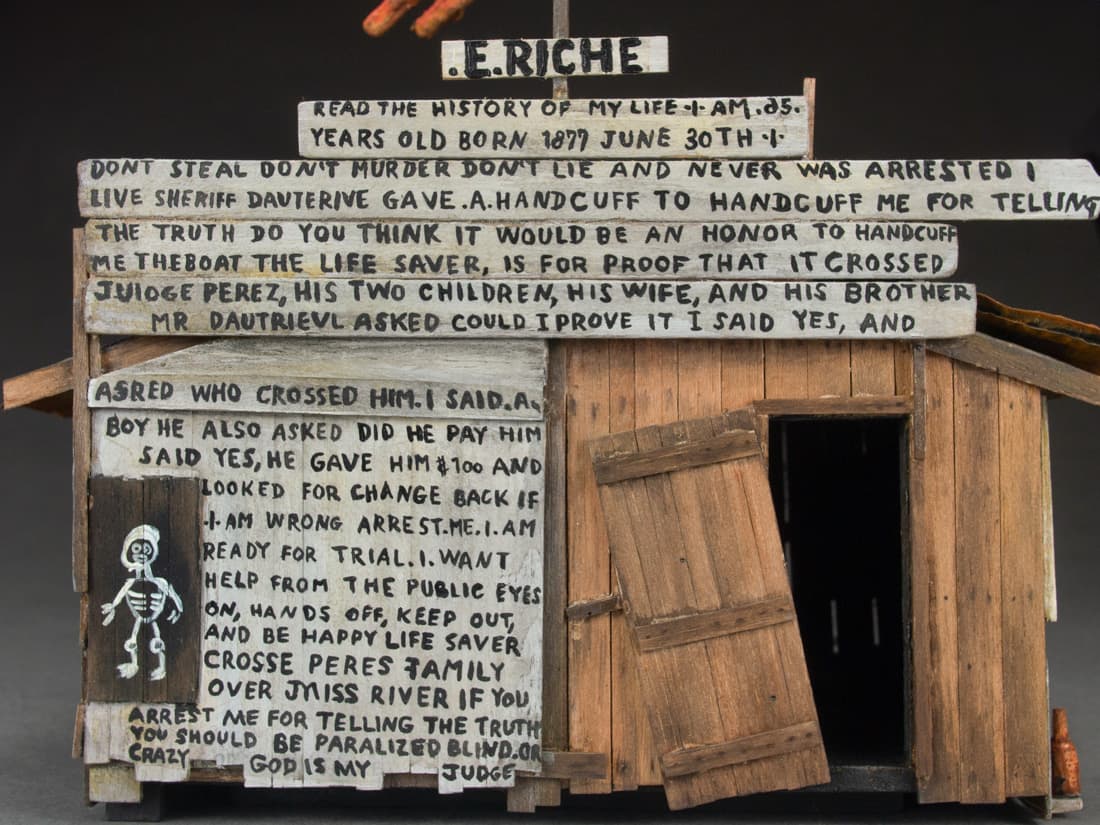 .E.RICHE
READ THE HISTORY OF MY LIFE I AM .35.
YEARS OLD BORN 1877 JUNE 30TH I
DONT STEAL DON'T MURDER DON'T LIE AND NEVER WAS ARRESTED I
LIVE SHERIFF DAUTERIVE GAVE .A. HANDCUFF TO HANDCUFF ME FOR TELLING
THE TRUTH DO YOU THINK IT WOULD BE AN HONOR TO HANDCUFF
ME THEBOAT THE LIFE SAVER, IS FOR PROOF THAT IT CROSSED
PEREZ, HIS TWO CHILDREN, HIS WIFE, AND HIS BROTHER
MR ASKED COULD I PROVE IT I SAID YES, AND
WHO CROSSED HIM. I SAID. A.
BOY HE ALSO ASKED DID HE PAY HIM
SAID YES, HE GAVE HIM $100 AND
LOOKED FOR CHANGE BACK IF
.I. AM WRONG ARREST.ME.I.AM
READY FOR TRIAL.I.WANT
HELP FROM THE PUBLIC EYES
ON, HANDS OFF, KEEP OUT,
AND BE HAPPY LIFE SAVER
CROSSE PERES FAMILY
OVER MISS RIVER IF YOU
ARREST ME FOR TELLING THE TRUTH
YOU SHOULD BE PARALIZED BLIND.OR
CRAZY GOD IS MY JUDGE